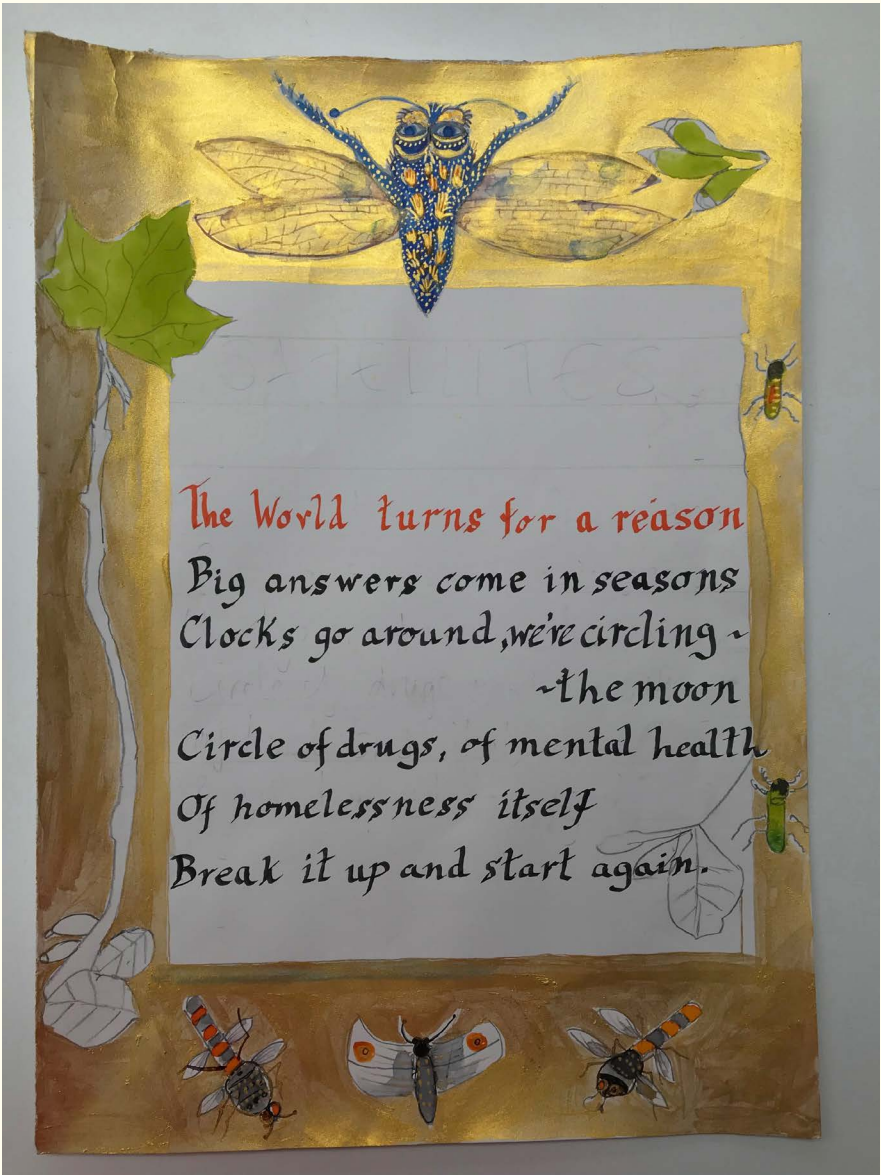 The World turns for a reason
Big answers come in seasons
Clocks go around, we're circling ~
~the moon
Circle of drugs, of mental health
Of homelessness itself
Break it up and start again.